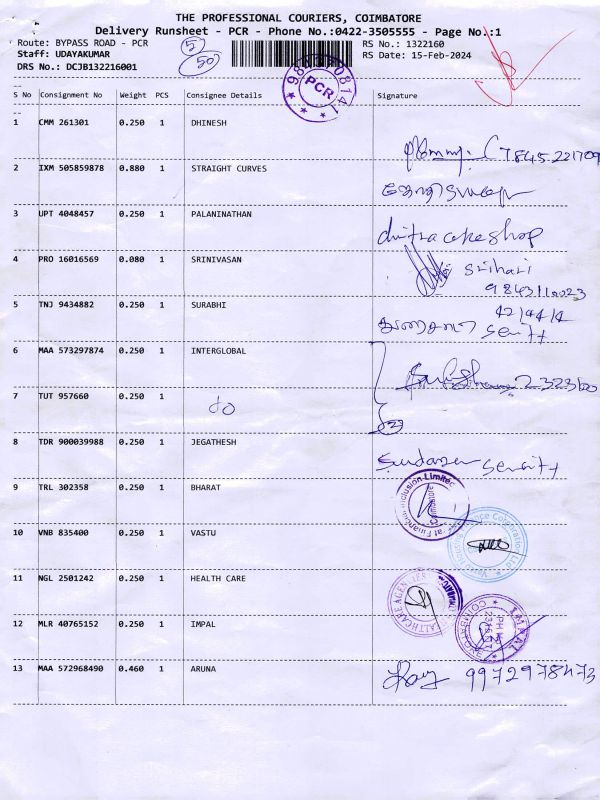 THE PROFESSIONAL COURIERS, COIMBATORE
Delivery Runsheet - PCR - Phone No.:0422-3505555 - Page No.:1
Route: BYPASS ROAD - PCR
Staff: UDAYAKUMAR
DRS No.: DCJB132216001
5
50
PCR
RS No.: 1322160
RS Date: 15-Feb-2024
S No Consignment No Weight PCS Consignee Details Signature
1 CMM 261301 0.250 1 DHINESH
2 IXM 505859878 0.880 1 STRAIGHT CURVES
3 UPT 4048457 0.250 1 PALANINATHAN chitra cake shop
4 PRO 16016569 0.080 1 SRINIVASAN Srihari
9843110023
5 TNJ 9434882 0.250 1 SURABHI
6 MAA 573297874 0.250 1 INTERGLOBAL
7 TUT 957660 0.250 1 do
8 TDR 900039988 0.250 1 JEGATHESH
9 TRL 302358 0.250 1 BHARAT
10 VNB 835400 0.250 1 VASTU
11 NGL 2501242 0.250 1 HEALTH CARE
12 MLR 40765152 0.250 1 IMPAL
IMPAL
13 MAA 572968490 0.460 1 ARUNA 9972978473